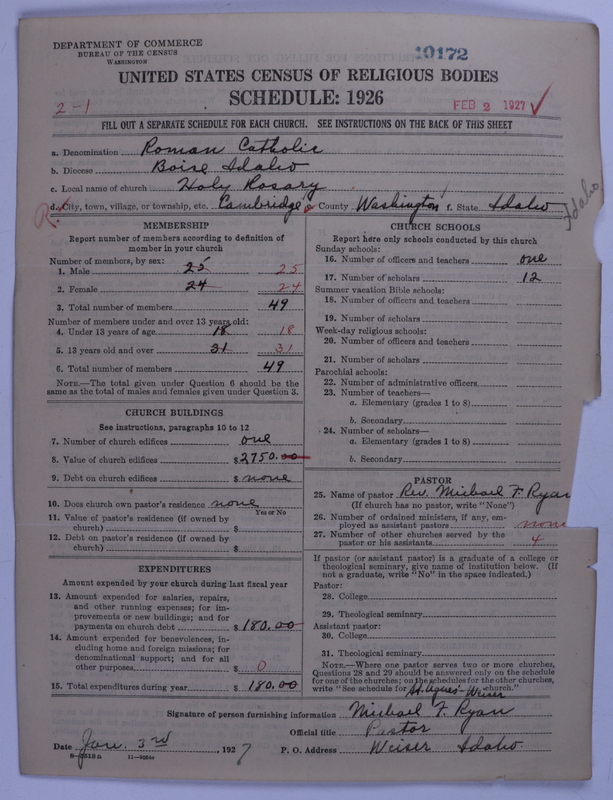 DEPARTMENT OF COMMERCE
BUREAU OF THE CENSUS
WASHINGTON
19172
UNITED STATES CENSUS OF RELIGIOUS BODIES
SCHEDULE: 1926
2-1
FEB 2 1927 ✓
FILL OUT A SEPARATE SCHEDULE FOR EACH CHURCH. SEE INSTRUCTIONS ON THE BACK OF THIS SHEET
a. Denomination Roman Catholic
b. Diocese Boise Idaho
c. Local name of church Holy Rosary
d. City, town, village, or township, etc. Cambridge e. County Washington f. State Idaho
Idaho
R.
MEMBERSHIP
Report number of members according to definition of
member in your church
Number of members, by sex:
1. Male 25 25
2. Female 24 24
3. Total number of members 49
Number of members under and over 13 years old:
4. Under 13 years of age 18 18
5. 13 years old and over 31 31
6. Total number of members 49
NOTE.—The total given under Question 6 should be
same as the total of males and females given under Question 3.
CHURCH BUILDINGS
See instructions, paragraphs 10 to 12
7. Number of church edifices one
8. Value of church edifices $ 2750.00
9. Debt on church edifices $ none
10. Does church own pastor's residence? none
Yes or No
11. Value of pastor's residence (if owned by
church) $
12. Debt on pastor's residence (if owned by
church) $
EXPENDITURES
Amount expended by your church during last fiscal year
13. Amount expended for salaries, repairs,
and other running expenses; for im-
provements or new buildings; and for
payments on church debt $ 180.00
14. Amount expended for benevolences, in-
cluding home and foreign missions; for
denominational support; and for all
other purposes $ 0
15. Total expenditures during year $ 180.00
CHURCH SCHOOLS
Report here only schools conducted by this church
Sunday schools:
16. Number of officers and teachers one
17. Number of scholars 12
Summer vacation Bible schools:
18. Number of officers and teachers
19. Number of scholars
Week-day religious schools:
20. Number of officers and teachers
21. Number of scholars
Parochial schools:
22. Number of administrative officers
23. Number of teachers—
a. Elementary (grades 1 to 8)
b. Secondary
24. Number of scholars—
a. Elementary (grades 1 to 8)
b. Secondary
PASTOR
25. Name of pastor Rev. Michael F. Ryan
(If church has no pastor, write "None")
26. Number of ordained ministers, if any, em-
ployed as assistant pastors none
27. Number of other churches served by the
pastor or his assistants 4
If pastor (or assistant pastor) is a graduate of a college or
theological seminary, give name of institution below. (If
not a graduate, write "No" in the space indicated.)
Pastor:
28. College
29. Theological seminary
Assistant pastor:
30. College
31. Theological seminary
NOTE.—Where one pastor serves two or more churches,
Questions 28 and 29 should be answered only on the schedule
for one of the churches; on the schedules for the other churches,
write "See schedule for St. Agnes - Weiser church."
Signature of person furnishing information Michael F. Ryan
Official title Pastor
Date Jan. 3rd, 1927 P. O. Address Weiser Idaho.